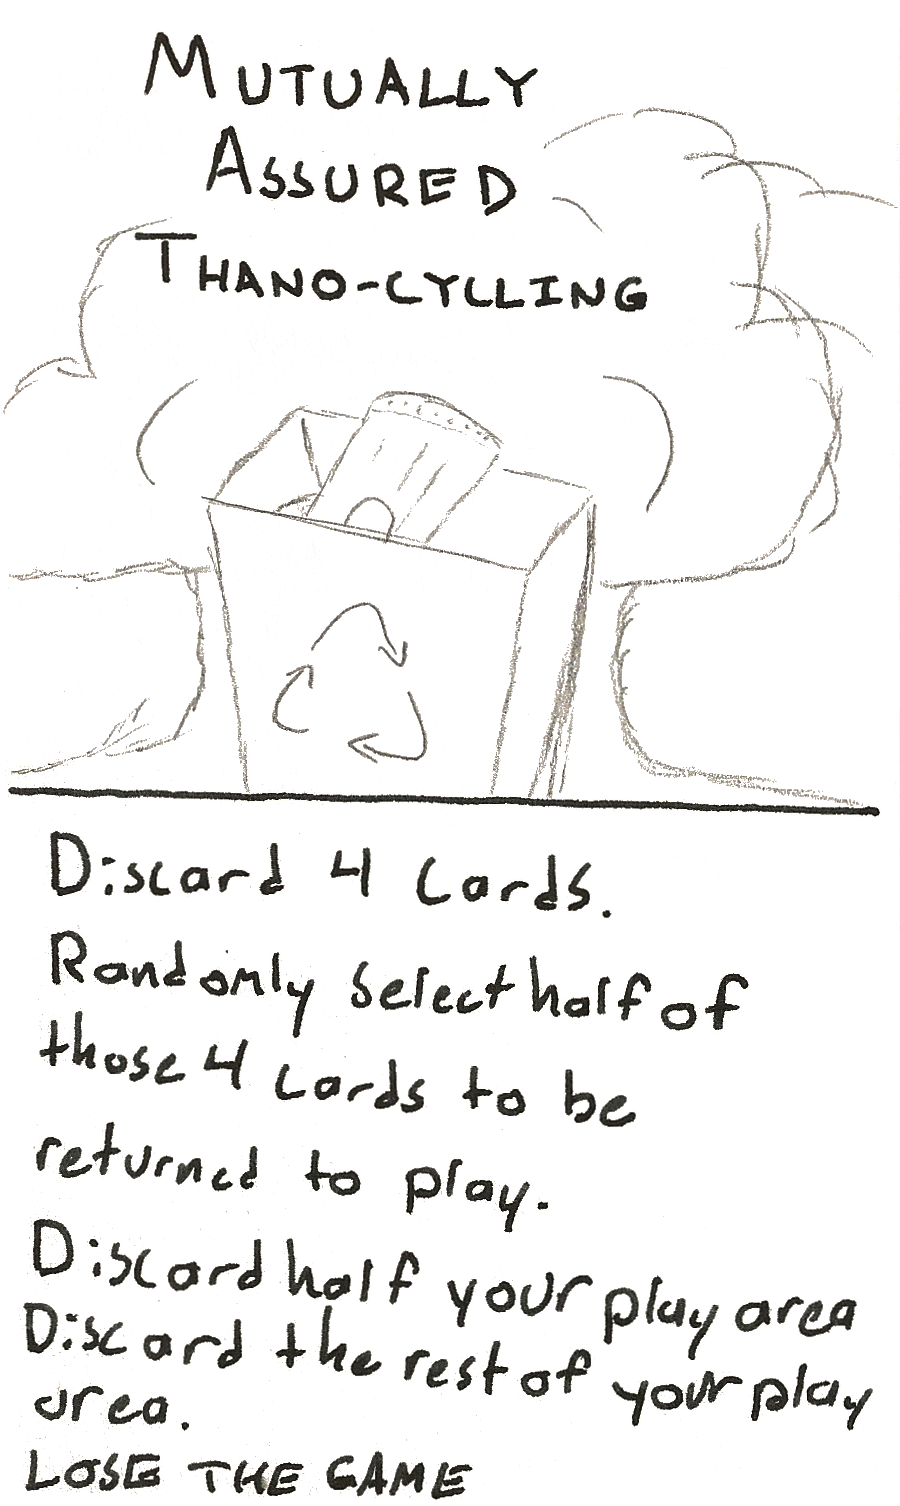 MUTUALLY
ASSURED
THANO-CYCLING
Discard 4 Cards.
Randomly select half of
those 4 cards to be
returned to play.
Discard half your play area
Discard the rest of your play
area.
LOSE THE GAME